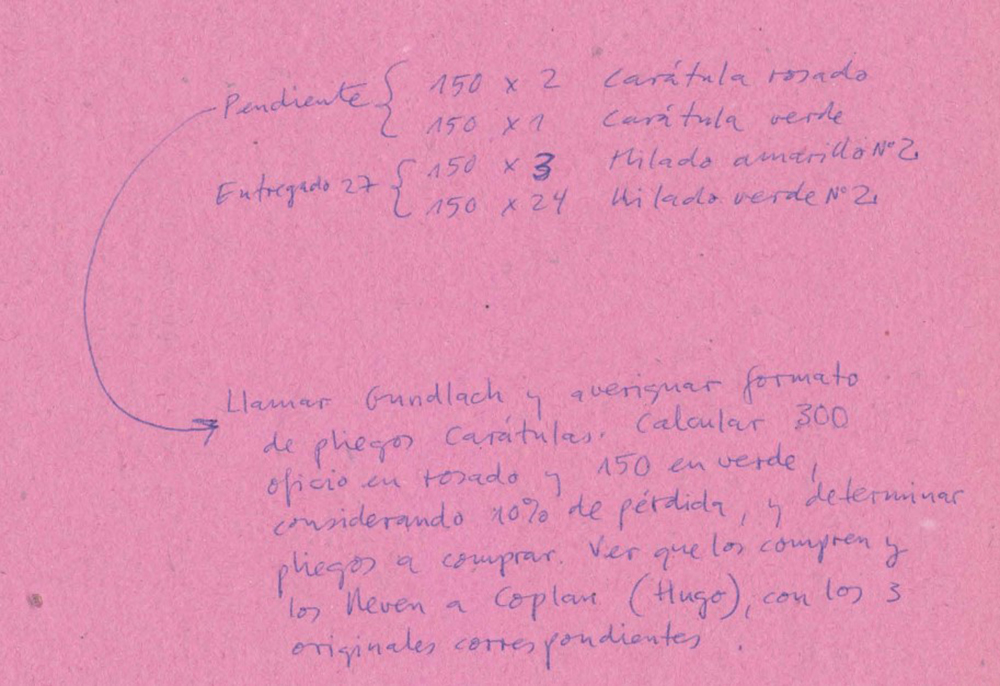 Pendiente { 150 x 2 Carátula rosado
150 x 1 Carátula verde
Entregado 27 { 150 x 3 Hilado amarillo Nº 2
150 x 24 Hilado verde Nº 2
Llamar Gundlach y averiguar formato
de pliegos Carátulas. Calcular 300
oficio en rosado y 150 en verde,
considerando 10% de pérdida, y determinar
pliegos a comprar. Ver que los compren y
los lleven a Coplan (Hugo), con los 3
originales correspondientes.